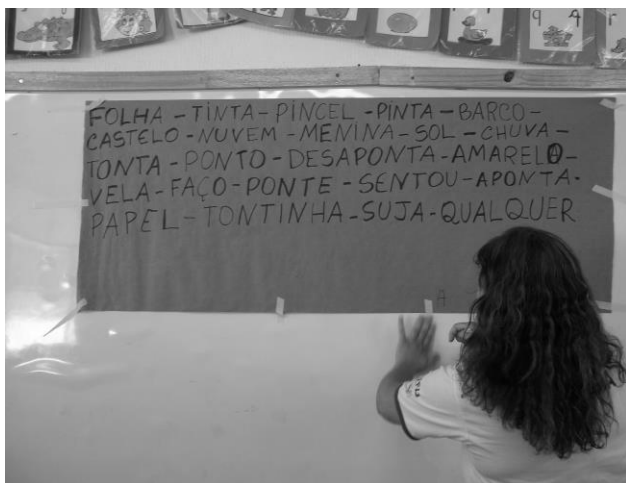 q
FOLHA - TINTA - PINCEL - PINTA - BARCO -
CASTELO - NUVEM - MENINA - SOL - CHUVA -
TONTA - PONTO - DESAPONTA - AMARELO -
VELA - FAÇO - PONTE - SENTOU - APONTA -
PAPEL - TONTINHA - SUJA - QUALQUER
A